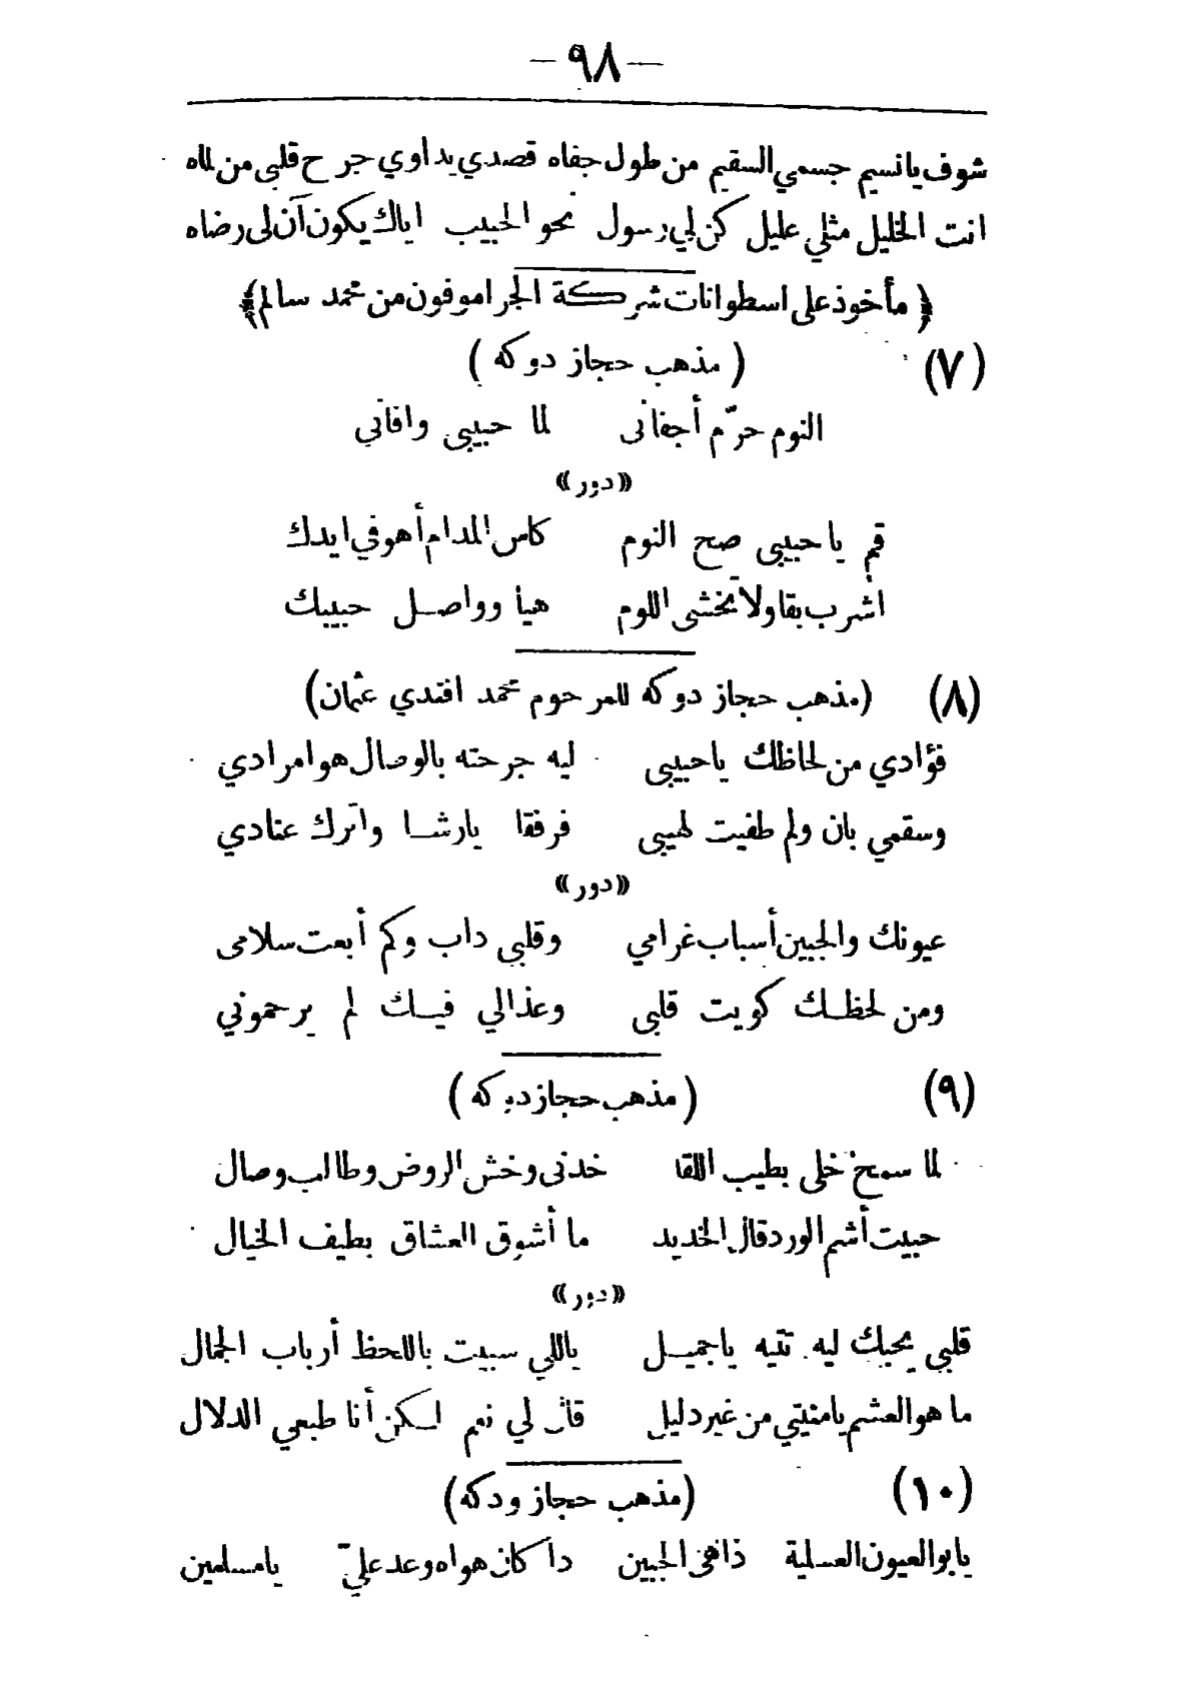 — ٩٨ —
شوف يا نسيم جسمي السقيم من طول جفاه قصدي يداوي جرح قلبى من لماه
انت الخليل مثلي عليل كن لي رسول نحو الحبيب اياك يكون آن لى رضاه
﴿ مأخوذ على اسطوانات شركة الجراموفون من محمد سالم ﴾
(٧) ( مذهب حجاز دوكه )
النوم حرّم أجفانى لما حبيبى وافاني
«دور»
قم يا حبيبى صح النوم كاس المدام أهو في ايدك
اشرب بقا ولا تخشى اللوم هيا وواصل حبيبك
(٨) (مذهب حجاز دوكه للمرحوم محمد افندي عثمان)
فؤادي من لحاظك يا حبيبى ليه جرحته بالوصال هوا مرادي
وسقمي بان ولم طفيت لهيبى فرفقا يا رشا واترك عنادي
«دور»
عيونك والجبين أسباب غرامي وقلبي داب وكم أبعت سلامى
ومن لحظك كويت قلبى وعذالي فيك لم يرحموني
(٩) ( مذهب حجاز دوكه )
لما سمح خلى بطيب اللقا خدنى وخش الروض وطالب وصال
حبيت أشم الورد قال الخديد ما أشوق العشاق بطيف الخيال
«دور»
قلبي يحبك ليه تتيه يا جميل ياللي سبيت باللحظ أرباب الجمال
ما هو العشم يا منيتي من غير دليل قال لي نعم لكن أنا طبعي الدلال
(١٠) (مذهب حجاز ودكه)
يابو العيون العسلية ذا في الجبين دا كان هواه وعد عليّ يا مسلمين